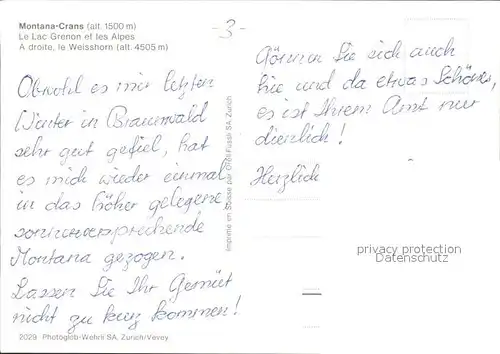 Montana-Crans (alt. 1500 m)
Le Lac Grenon et les Alpes
A droite, le Weisshorn (alt. 4505 m)
-3-
Obwohl es mir letzten
Winter in Braunwald
sehr gut gefiel, hat
es mich wieder einmal
in das höher gelegene
sonnenversprechende
Montana gezogen.
Lassen Sie Ihr Gemüt
nicht zu kurz kommen!
2029 - Photoglob-Wehrli SA, Zurich/Vevey
Imprimé en Suisse par Orell Füssli SA, Zurich
Gönnen Sie sich auch
hie und da etwas Schönes,
es ist Ihrem Amt nur
dienlich!
Herzlich
privacy protection
Datenschutz